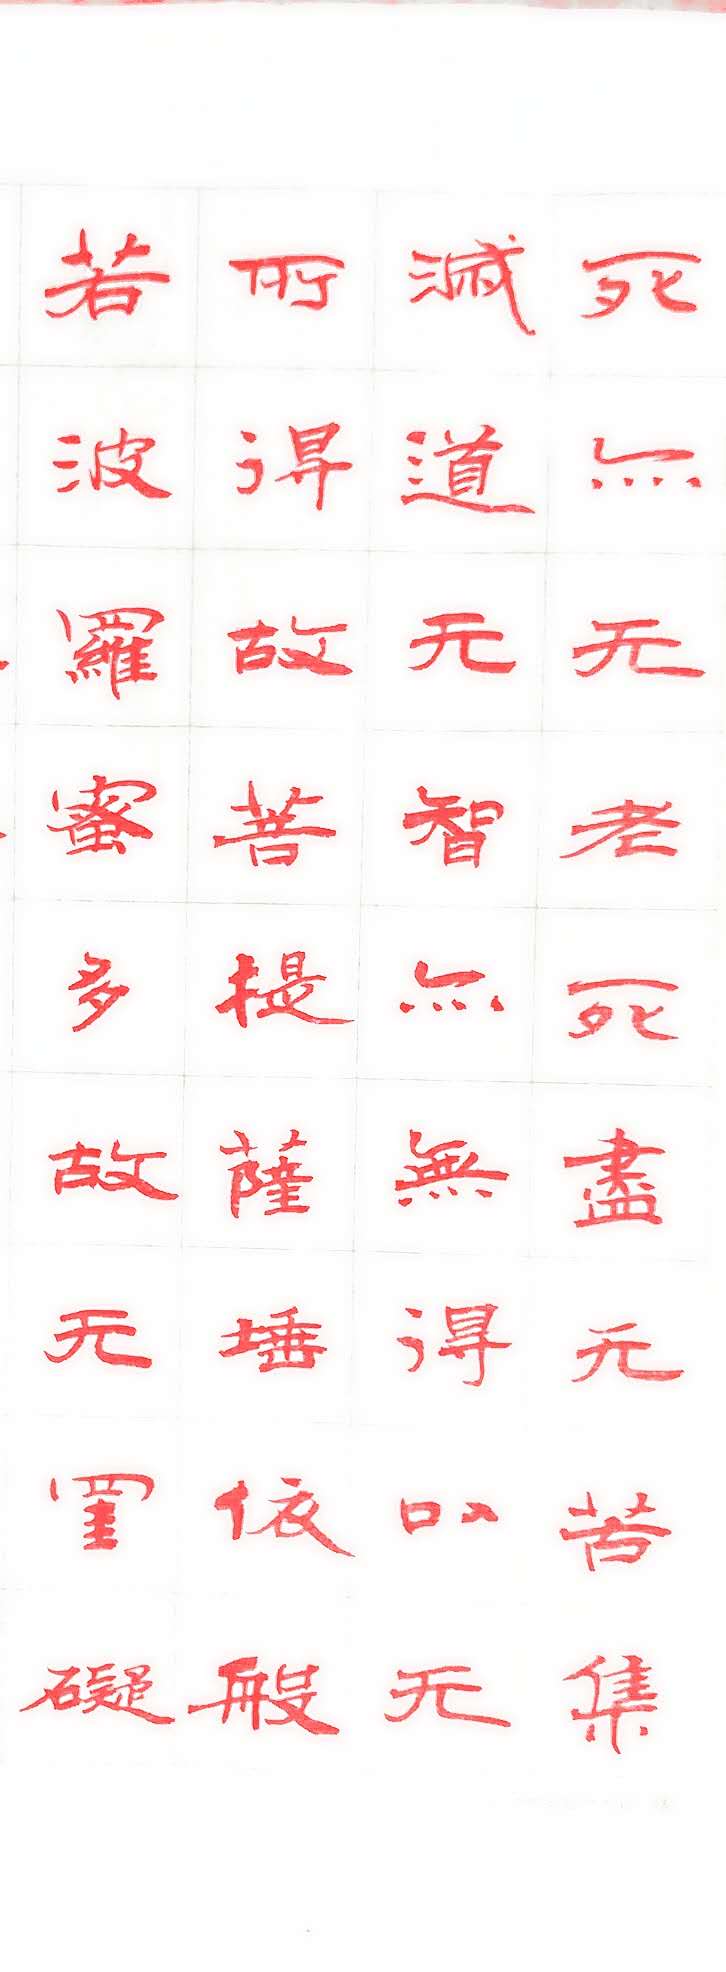 死亦无老死盡无苦集
滅道无智亦無得以无
所得故菩提薩埵依般
若波羅蜜多故无罣礙